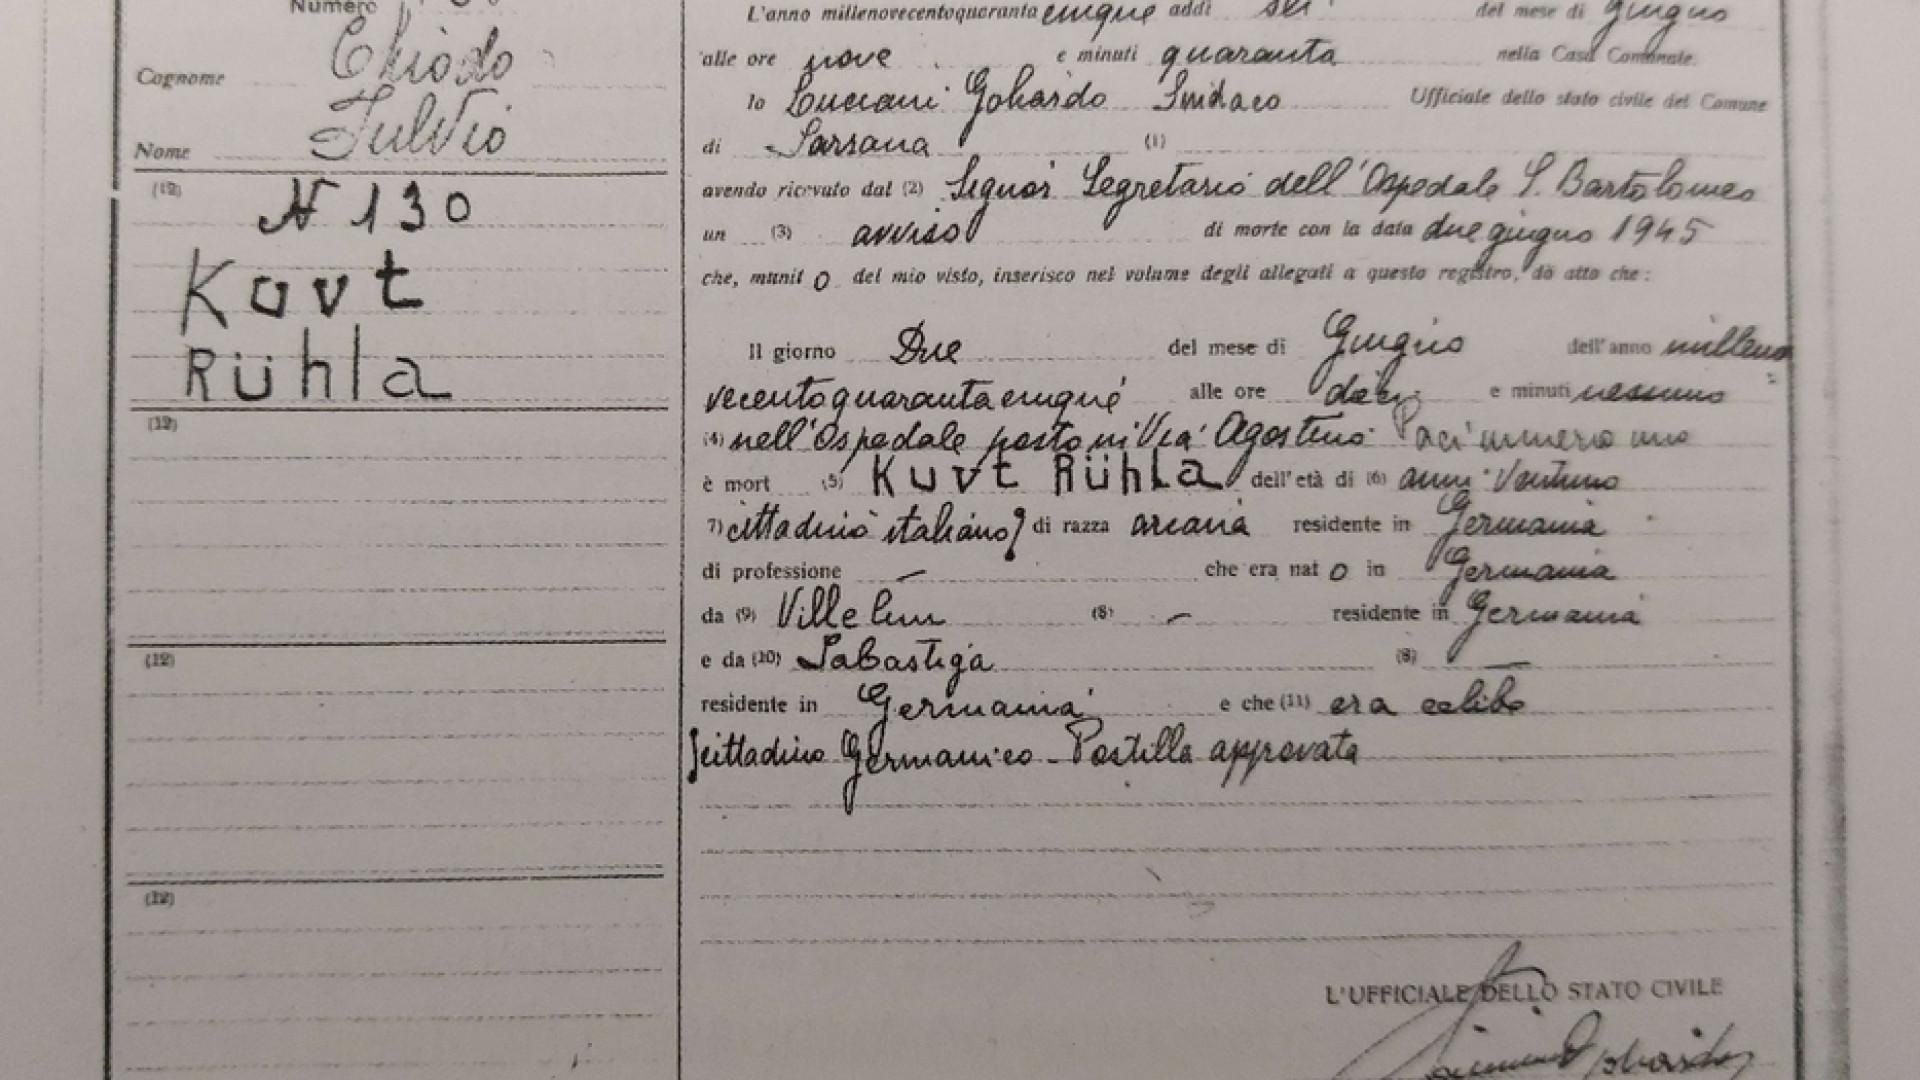 Numero
Cognome Chiodo
Nome Fulvio
(12)
N 130
Kuvt
Rühla
(12)
(12)
(12)
L'anno millenovecentoquaranta cinque addì sei del mese di Giugno
alle ore nove e minuti quaranta nella Casa Comunale.
Io Lucciani Gohardo Sindaco Ufficiale dello stato civile del Comune
di Sarzana (1)
avendo ricevuto dal (2) Signor Segretario dell'Ospedale S. Bartolomeo
un (3) avviso di morte con la data due giugno 1945
che, munit o del mio visto, inserisco nel volume degli allegati a questo registro, dò atto che:
Il giorno Due del mese di Giugno dell'anno milleno
vecentoquarantacinque alle ore dieci e minuti nessuno
(4) nell'Ospedale posto in Via Agostino Paci numero uno
è mort (5) Kuvt Rühla dell'età di (6) anni Ventuno
7) cittadino italiano di razza ariana residente in Germania
di professione — che era nat o in Germania
da (9) Villelm (8) — residente in Germania
e da (10) Sabastiga (8) —
residente in Germania e che (11) era celibe
cittadino Germanico - Postilla approvata
L'UFFICIALE DELLO STATO CIVILE